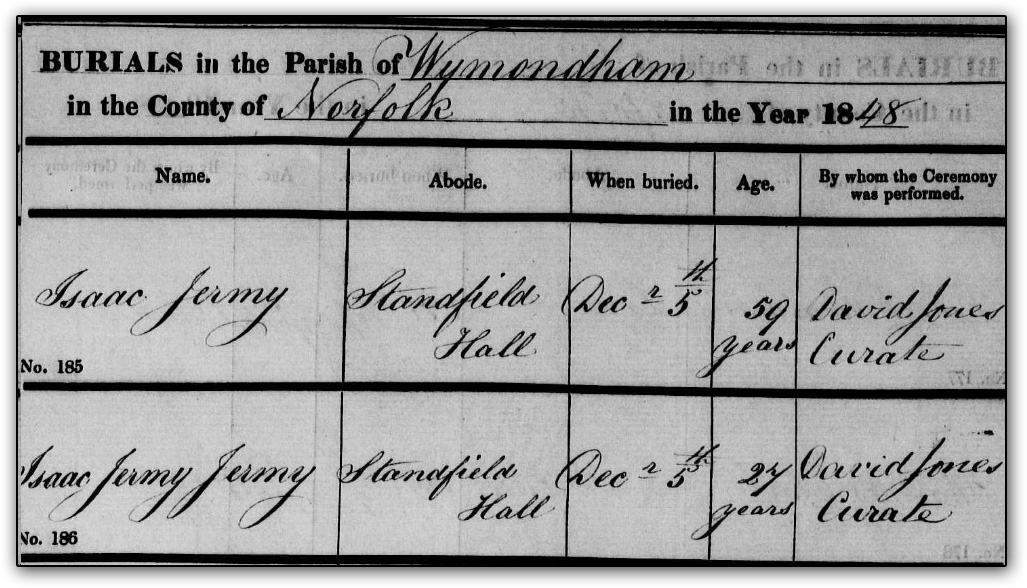 BURIALS in the Parish of Wymondham
in the County of Norfolk in the Year 1848
Name. Abode. When buried. Age. By whom the Ceremony was performed.
Isaac Jermy Standfield Hall Decr 5th 59 years David Jones Curate
No. 185
Isaac Jermy Jermy Standfield Hall Decr 5th 27 years David Jones Curate
No. 186